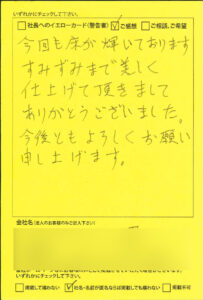 いずれかにチェックして下さい。
□社長へのイエローカード(警告書) ☑ご感想 □ご相談、ご希望
今回も床が輝いております
すみずみまで美しく
仕上げて頂きまして
ありがとうございました。
今後ともよろしくお願い
申し上げます。
会社名(法人のお客様のみご記入下さい)
いずれかにチェックして下さい。
□掲載して構わない ☑社名・名前が匿名ならば掲載しても構わない □掲載不可